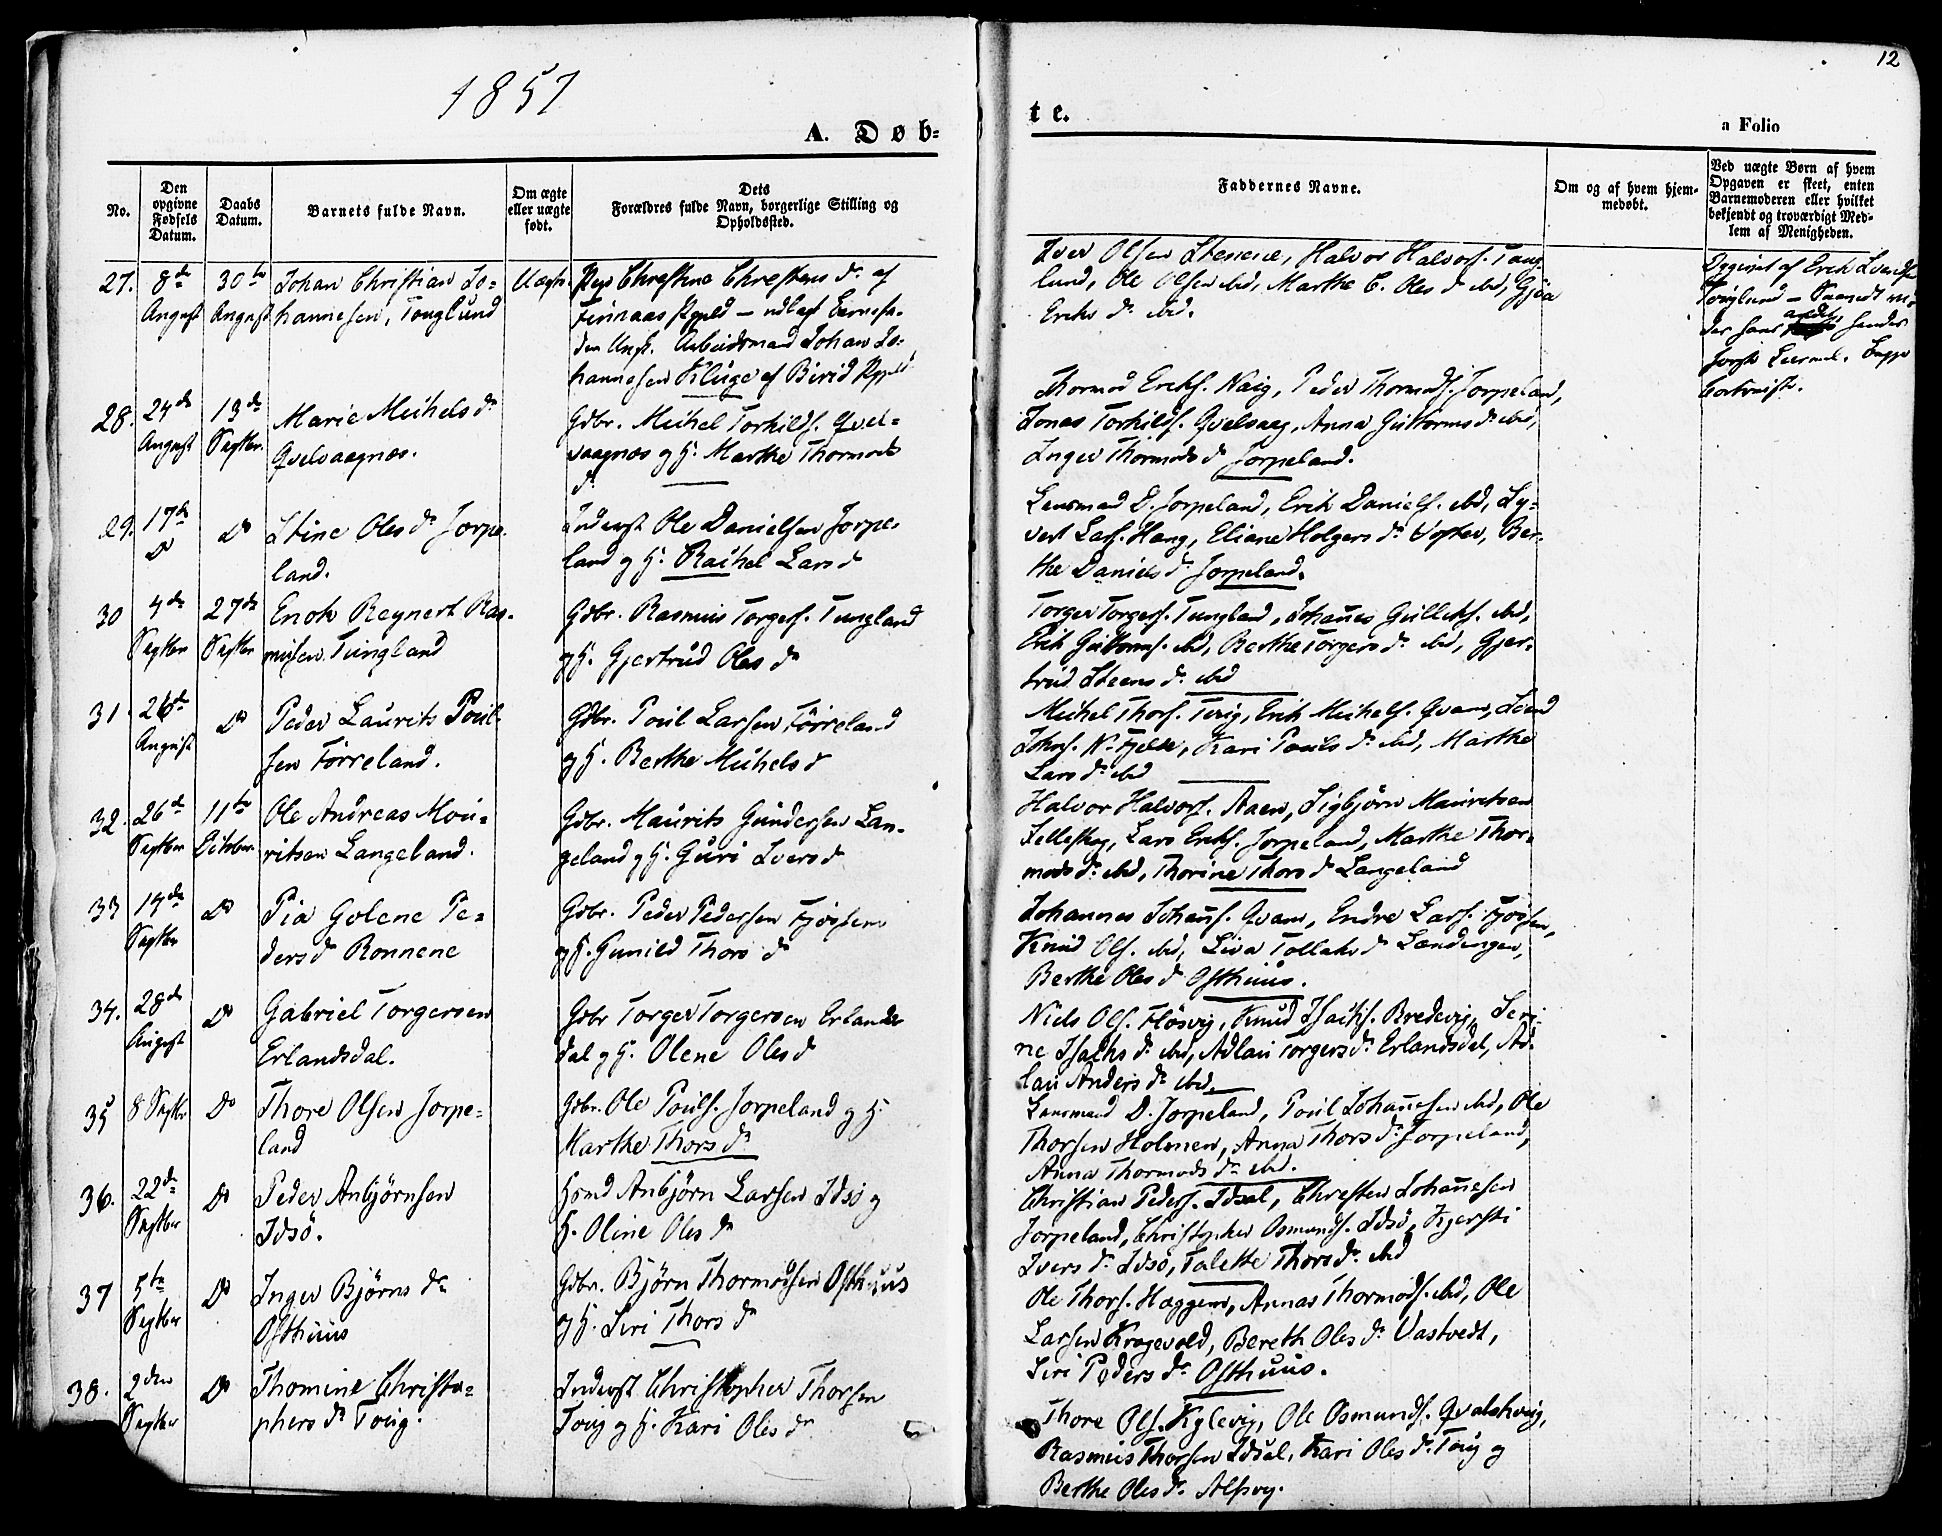 12
1857
A. Døb-
te.
a Folio
No.
Den opgivne Fødsels Datum.
Daabs Datum.
Barnets fulde Navn.
Om ægte eller uægte født.
Dets Forældres fulde Navn, borgerlige Stilling og Opholdssted.
Faddernes Navne.
Om og af hvem hjemmedøbt.
Ved uægte Børn af hvem
Opgaven er skeet, enten
Barnemoderen eller hvilket
bekjendt og troværdigt Med-
lem af Menigheden.
27. 8de August 30te August
Johan Christian Jo-
hannesen, Tonglund
Uægte
Pige Christine Christens dr af
Finnaas Pgjeld – udlagt Barnefa-
der Ungk. Arbeidsmand Johan Jo-
hannesen Kluge af Birid Pgjeld
Iver Olsen Stenene, Halvor Halvors. Tong-
lund, Ole Olsen ibid, Marthe C. Oles d ibid, Gjøa
Eriks dr ibid.
Opgivet af Erik Iversen
Tonglund –
der hans andet hendes
første Leierm.
28. 24de August 13de Septbr.
Marie Michels dr
Qvelvaagnæs.
Gdbr. Michel Torkilds. Qvel-
vaagnæs og H. Marthe Thormods
dr
Thormod Eriks. Vaig, Peder Thormods. Jorpeland,
Jonas Torkilds. Qvelvaag, Anna Guttorms dr ibid,
Inger Thormods d Jorpeland.
29. 17de do do
Stine Oles dr Jorpe-
land.
Inderst Ole Danielsen Jorpe-
land og H. Rachel Lars d
Lensmand D. Jorpeland, Erik Daniels. ibid, Sy-
vert Lars. Haug, Eliane Holgers dr Vosker, Ber-
the Daniels d Jorpeland.
30 4de Septbr 27de Septbr
Enok Reynert Ras-
musen Tungland
Gdbr. Rasmus Torgers. Tungland
og H. Gjertrud Oles dr
Torger Torgers. Tungland, Johanes Gulleks. ibid,
Erik Guttorms. ibid, Berthe Torgers dr ibid, Gjer-
trud Steens dr ibid
31. 26de August do
Peder Laurits Poul-
sen Førreland.
Gdbr. Poul Larsen Førreland
og H. Berthe Michels d
Michel Thors. Tuig, Erik Michels. Qvam, Svend
Johns. N. Fjelde, Kari Pouls dr ibid, Marthe
Lars dr ibid
32. 26de Septbr 11te October
Ole Andreas Mou-
ritsen Langeland.
Gdbr. Maurits Gundersen Lan-
geland og H. Guri Ivers d
Halvor Halvors. Aaen, Sigbjørn Mauritsen
Selleskog, Lars Eriks. Jorpeland, Marthe Thor-
mods dr ibid, Thorine Thors d Langeland
33 14de Septbr do
Pia Golene Pe-
ders d Ronnene
Gdbr. Peder Pedersen Fjøssene
og H. Gunild Thors d
Johannes Johans. Qvam, Endre Lars. Fjøssen,
Knud Ols. ibid, Siva Tollaks d Lændingen,
Berthe Oles d Osthuus.
34. 28de August do
Gabriel Torgersen
Erlandsdal.
Gdbr Torger Torgersen Erlands-
dal og H. Olene Oles d
Niels Ols. Fløsvig, Knud Isachs. Bredevig, Seri-
ne Isachs dr ibid, Adlau Torgers dr Erlandsdal, Ad-
lau Anders dr ibid.
35 8 Septbr do
Thore Olsen Jorpe-
land
Gdbr. Ole Pouls. Jorpeland og H.
Marthe Thors dr
Lensmand D. Jorpeland, Poul Johannesen ibid, Ole
Thorsen Holmen, Anna Thors dr Jorpeland,
Anna Thormods dr ibid.
36. 22de Septbr do
Peder Anbjørnsen
Idsø.
Hsmd Anbjørn Larsen Idsø og
H. Oline Oles dr
Christian Peders. Idsal, Christen Johanesen
Jorpeland, Christopher Osmunds. Idsø, Kjersti
Ivers dr Idsø, Talette Thors dr ibid
37 5te Septbr do
Inger Bjørns dr
Osthuus
Gdbr. Bjørn Thormodsen Osthuus
og H. Siri Thors dr
Ole Thors. Haggen, Annas Thormods. ibid, Ole
Larsen Kragevold, Bereth Oles dr Vastvedt,
Siri Peders dr Osthuus.
38. 2den Septbr do
Thomine Christo-
phers dr Touig.
Inderst Christopher Thorsen
Touig og H. Kari Oles dr
Thore Ols. Kylevig, Ole Osmunds.
Rasmus Thorsen Idsal, Kari Oles dr Touig og
Berthe Oles dr Alsvig.